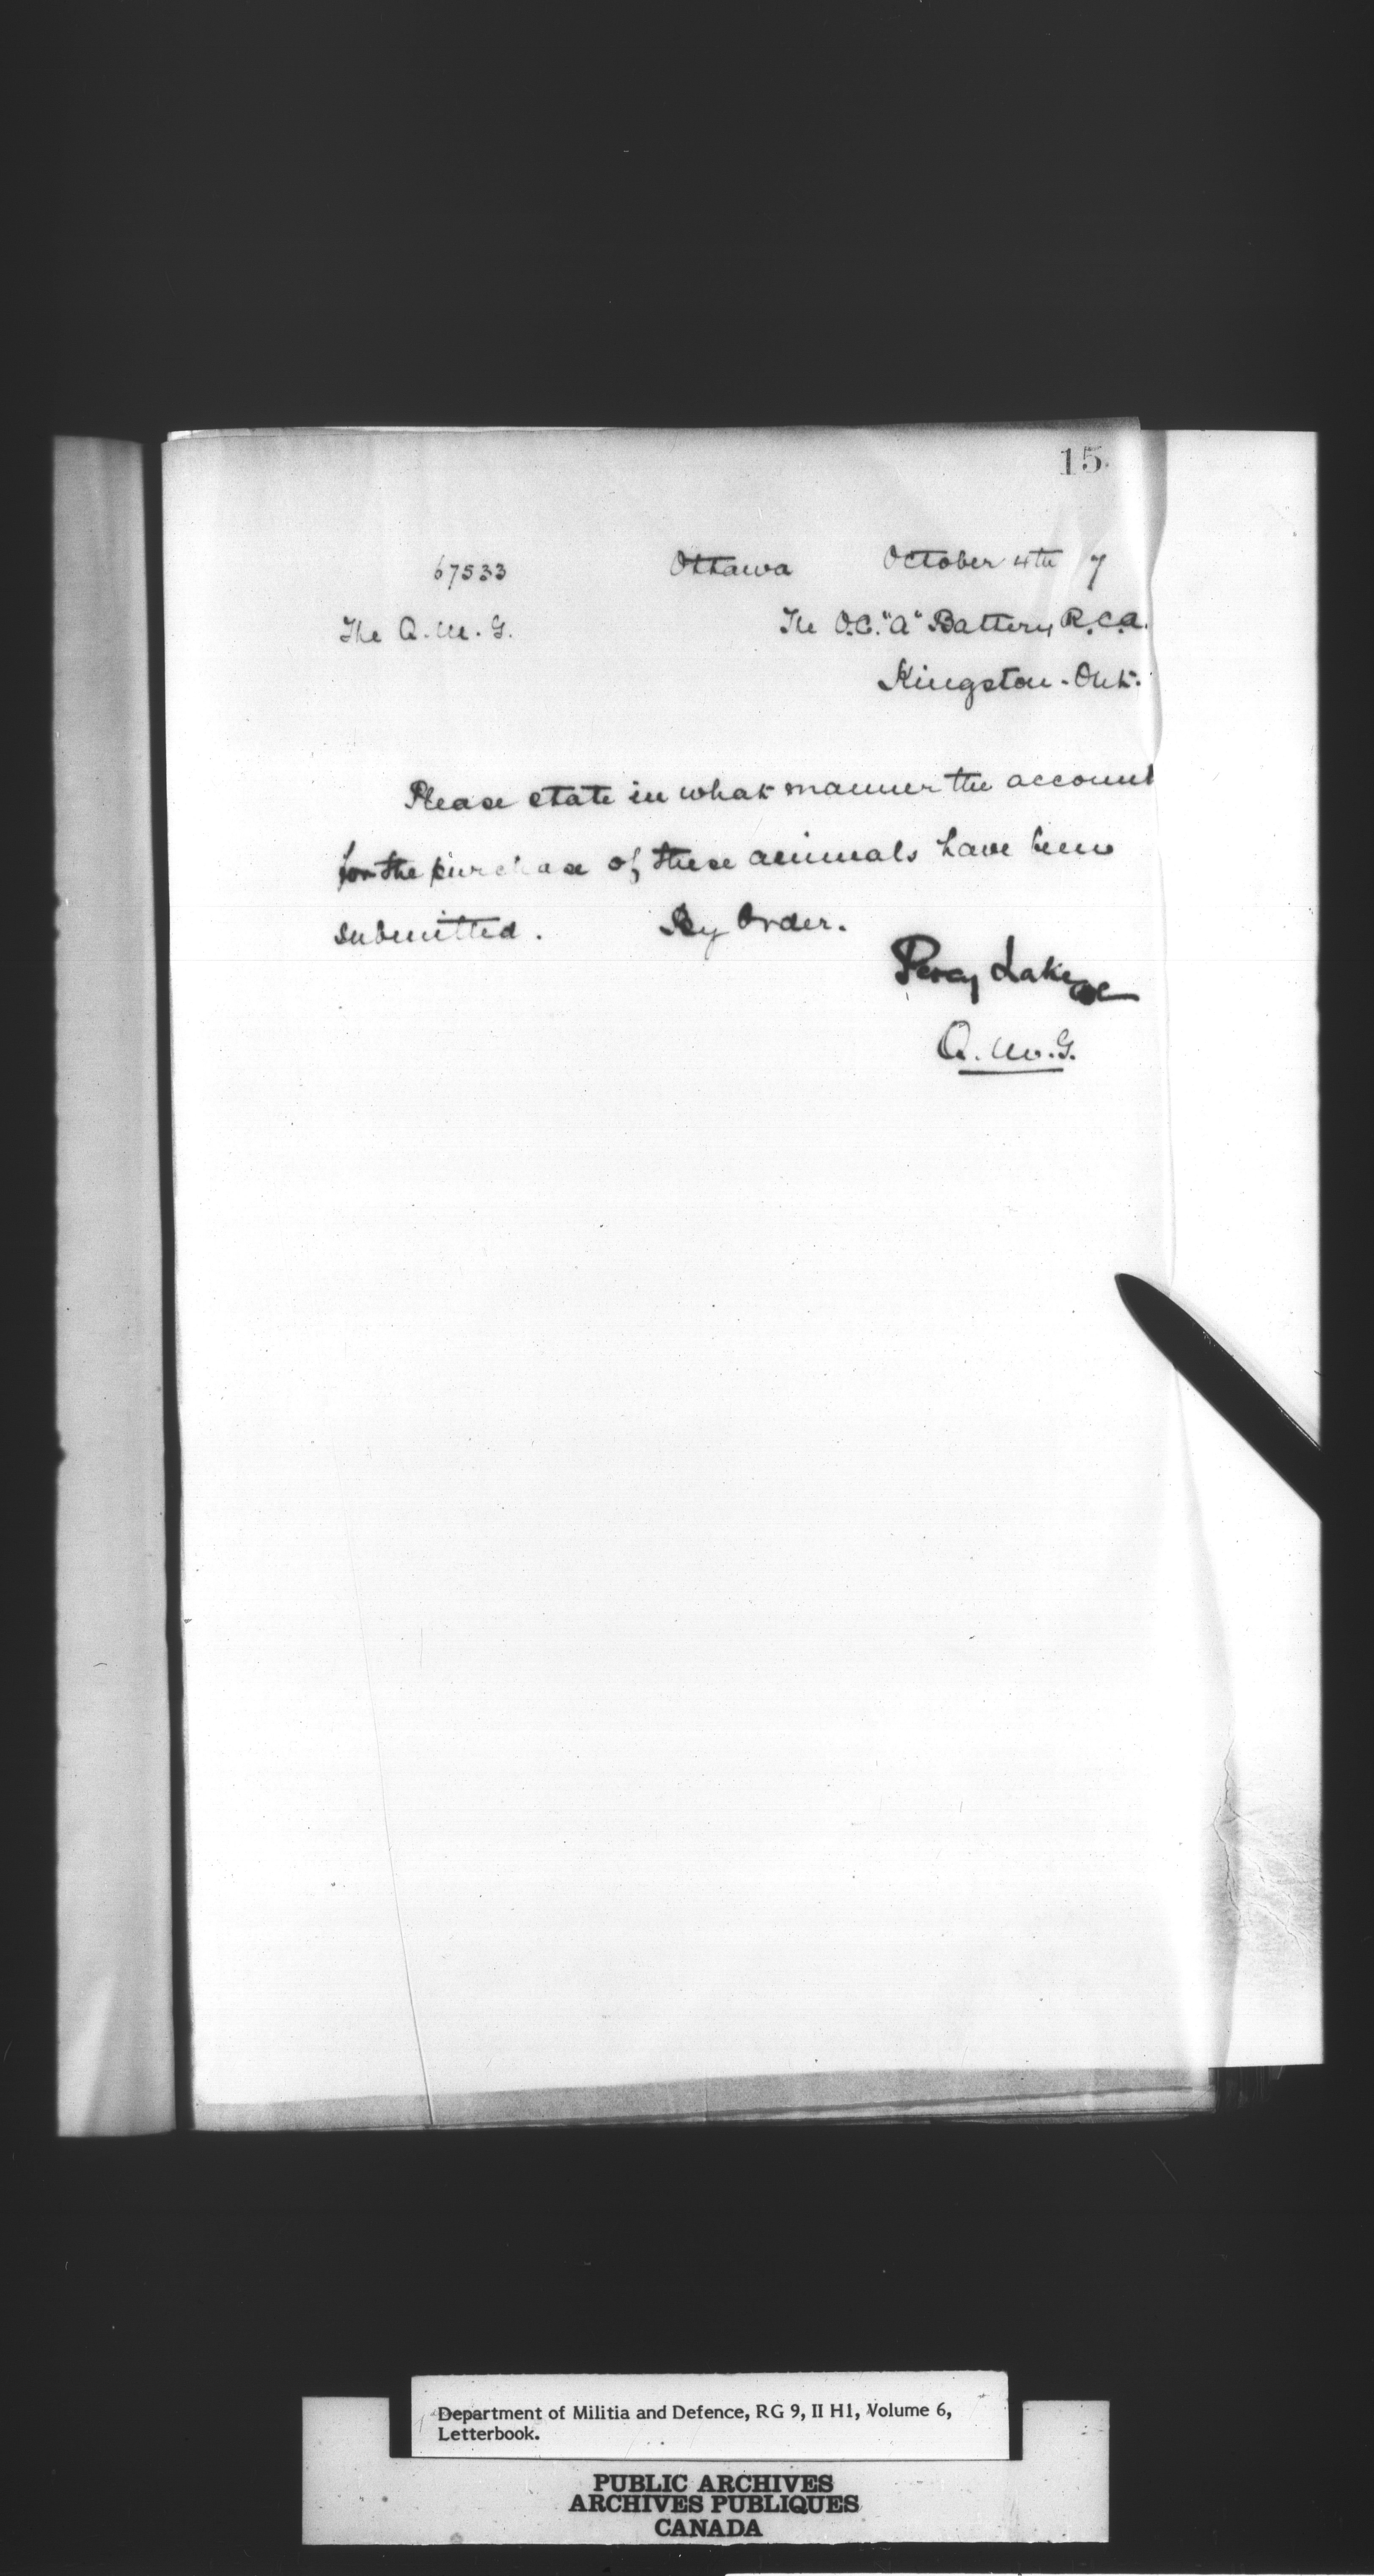 15
67533 Ottawa October 4th 7
The Q.M.G. The O.C. "A" Battery R.C.A.
Kingston - Ont.
Please state in what manner the account
for the purchase of these animals have been
submitted. By Order.
Percy Lake
Q.M.G.
Department of Militia and Defence, RG 9, II H1, Volume 6,
Letterbook.
PUBLIC ARCHIVES
ARCHIVES PUBLIQUES
CANADA